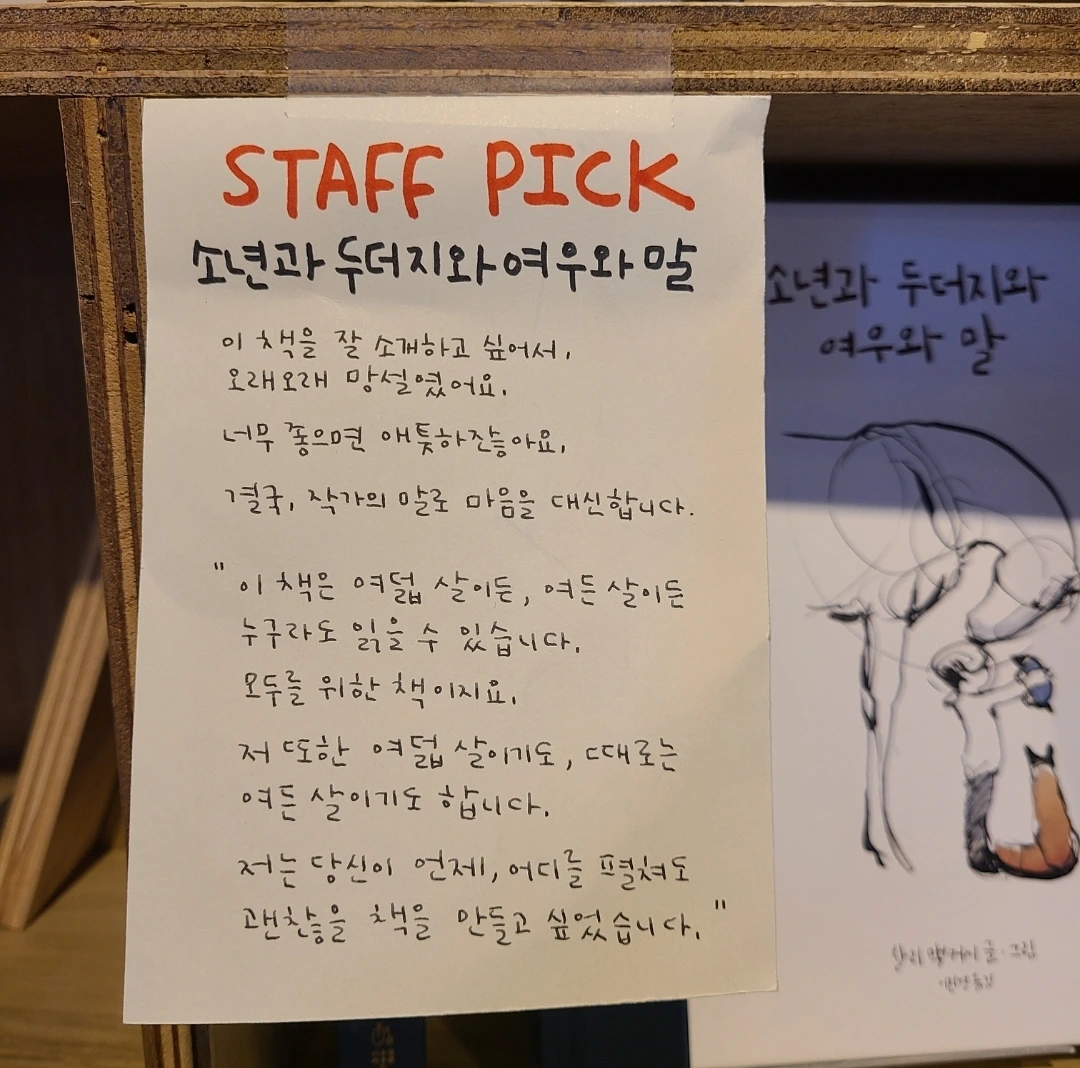 STAFF PICK
소년과 두더지와 여우와 말
이 책을 잘 소개하고 싶어서,
오래오래 망설였어요.
너무 좋으면 애틋하잖아요.
결국, 작가의 말로 마음을 대신합니다.
" 이 책은 여덟 살이든, 여든 살이든
누구라도 읽을 수 있습니다.
모두를 위한 책이지요.
저 또한 여덟 살이기도, 때로는
여든 살이기도 합니다.
저는 당신이 언제, 어디를 펼쳐도
괜찮을 책을 만들고 싶었습니다. "
소년과 두더지와
여우와 말
찰리 맥커시 글·그림